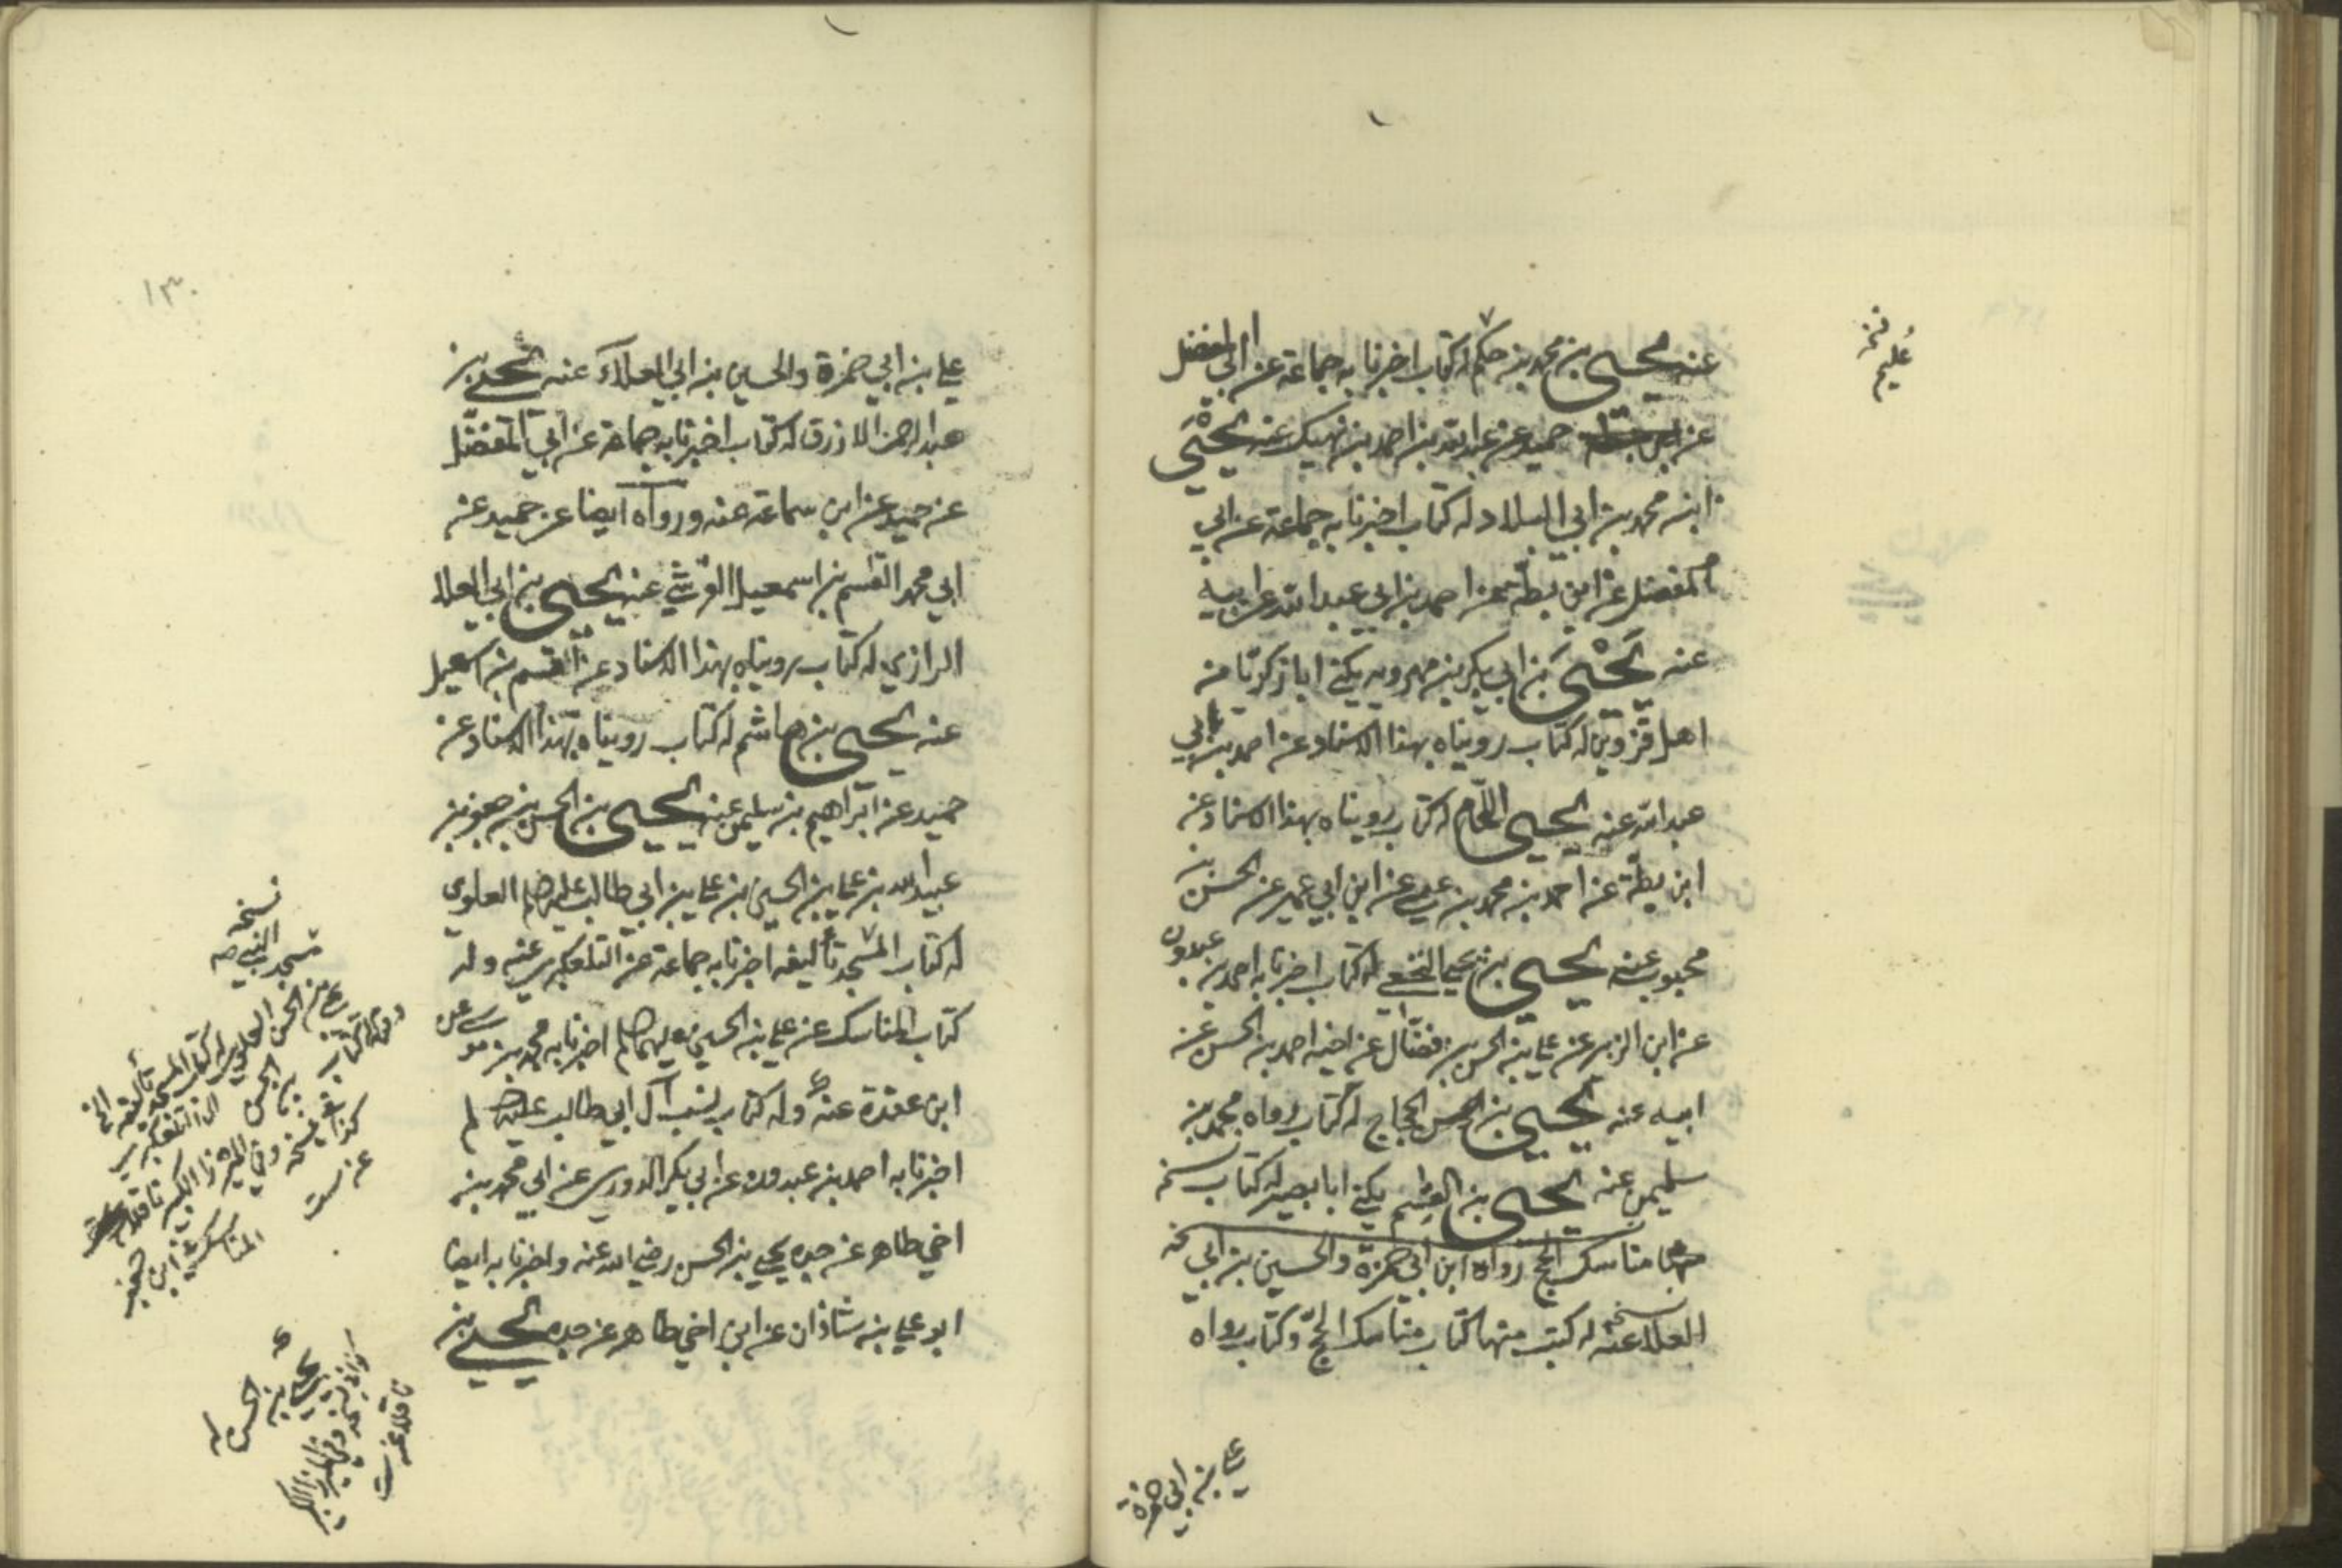 عنه يحيى بن محمد بن حكيم له كتاب اخبرنا به جماعة عن ابي المفضل
عن حميد عن عبد الله بن احمد بن نهيك عنه يحيى
ابن محمد بن ابي البلاد له كتاب اخبرنا به جماعة عن ابي
المفضل عن ابن بطة عن احمد بن ابي عبد الله عن ابيه
عنه يحيى بن ابي بكر بن مهرويه يكنى ابا زكريا من
اهل قزوين له كتاب رويناه بهذا الاسناد عن احمد بن ابي
عبد الله عنه يحيى اللحام له كتاب رويناه بهذا الاسناد عن
ابن بطة عن احمد بن محمد بن عيسى عن ابن ابي عمير عن الحسن بن
محبوب عنه يحيى بن يحيى النخعي له كتاب اخبرنا به احمد بن عبدون
عن ابن الزبير عن علي بن الحسن بن فضال عن اخيه احمد بن الحسن عن
ابيه عنه يحيى بن الحجاج له كتاب رواه محمد بن
سليمن عنه يحيى بن القسم يكنى ابا بصير له كتاب
مناسك الحج رواه ابن ابي حمزة والحسين بن ابي
العلا عنه له كتب منها كتاب مناسك الحج وكتاب رواه
علي بن ابي حمزة
١٣٠
علي بن ابي حمزة والحسين بن ابي العلاء عنه يحيى بن
عبد الرحمن الازرق له كتاب اخبرنا به جماعة عن ابي المفضل
عن حميد عن ابن سماعة عنه ورواه ايضا عن حميد عن
ابي محمد القسم بن اسمعيل القرشي عنه يحيى بن ابي العلا
الرازي له كتاب رويناه بهذا الاسناد عن القسم بن اسمعيل
عنه يحيى بن هاشم له كتاب رويناه بهذا الاسناد عن
حميد عن ابراهيم بن سليمن عنه يحيى بن الحسن بن جعفر بن
عبيد الله بن علي بن الحسين بن علي بن ابي طالب العلوي
له كتاب المسجد تأليفه اخبرنا به جماعة عن التلعكبري عنه وله
كتاب المناسك عن علي بن الحسين اخبرنا به محمد بن موسى عن
ابن عقدة عنه وله كتاب نسب آل ابي طالب
اخبرنا به احمد بن عبدون عن ابي بكر الدوري عن ابي محمد بن
اخي طاهر عن جده يحيى بن الحسن رضي الله عنه واخبرنا به ايضا
ابو علي بن شاذان عن ابن اخي طاهر عن جده يحيى بن
نسخة
مسجد النبي ص
يحيى بن الحسن له